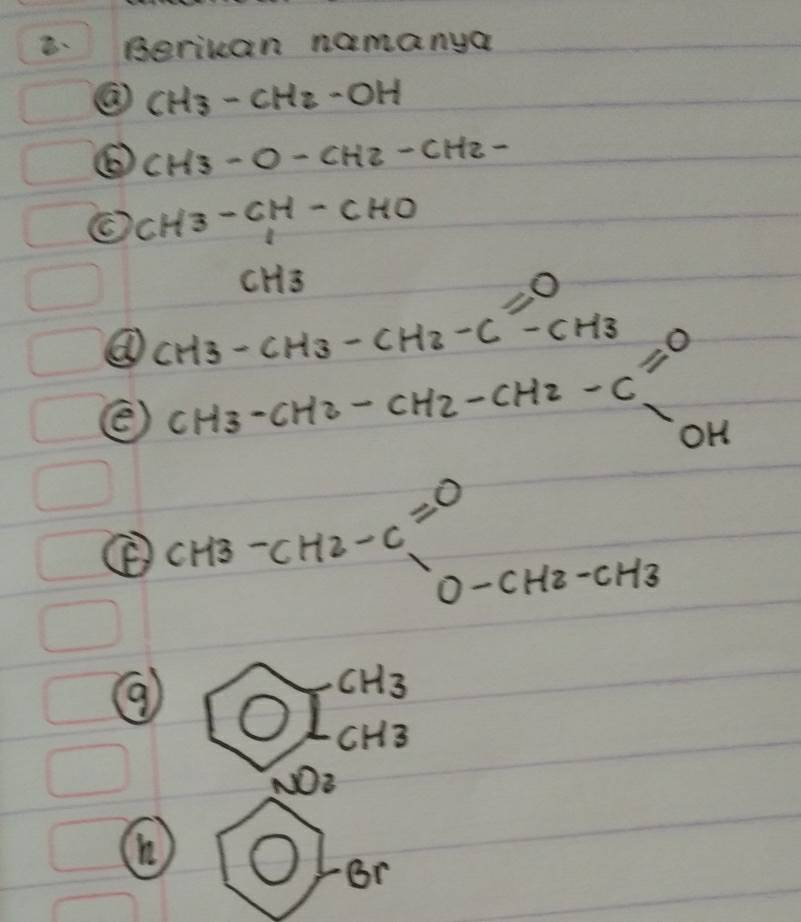 2. Berikan namanya
ⓐ CH3 - CH2 - OH
ⓑ CH3 - O - CH2 - CH2 -
ⓒ CH3 - CH - CHO
CH3
ⓓ CH3 - CH3 - CH2 - C = O - CH3
ⓔ CH3 - CH2 - CH2 - CH2 - C = O
OH
ⓕ CH3 - CH2 - C = O
O - CH2 - CH3
ⓖ CH3
CH3
NO2
ⓗ Br